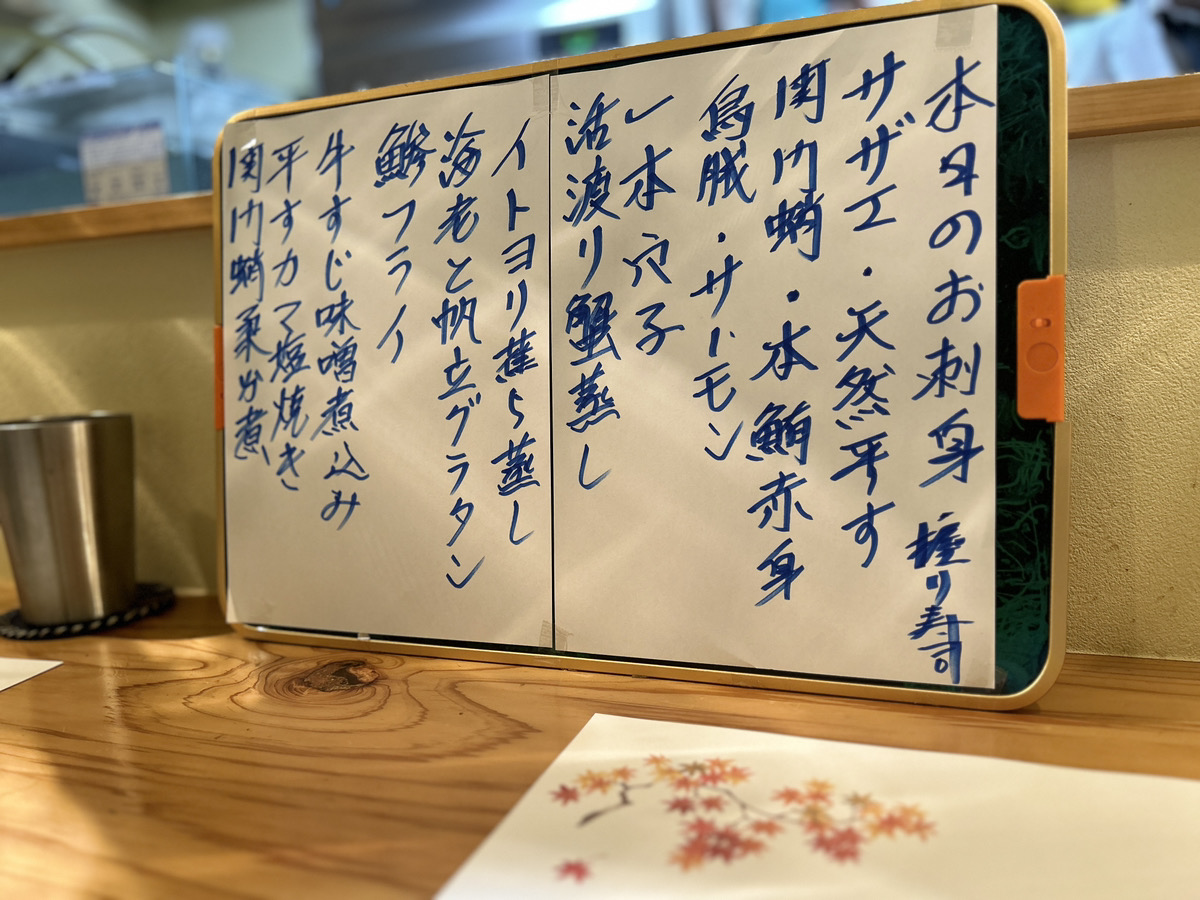 本日のお刺身 握り寿司
サザエ・天然平す
関門蛸・本鮪赤身
烏賊・サーモン
一本穴子
活渡り蟹蒸し
イトヨリ蕪ら蒸し
海老と帆立グラタン
鯵フライ
牛すじ味噌煮込み
平すカマ塩焼き
関門蛸柔か煮